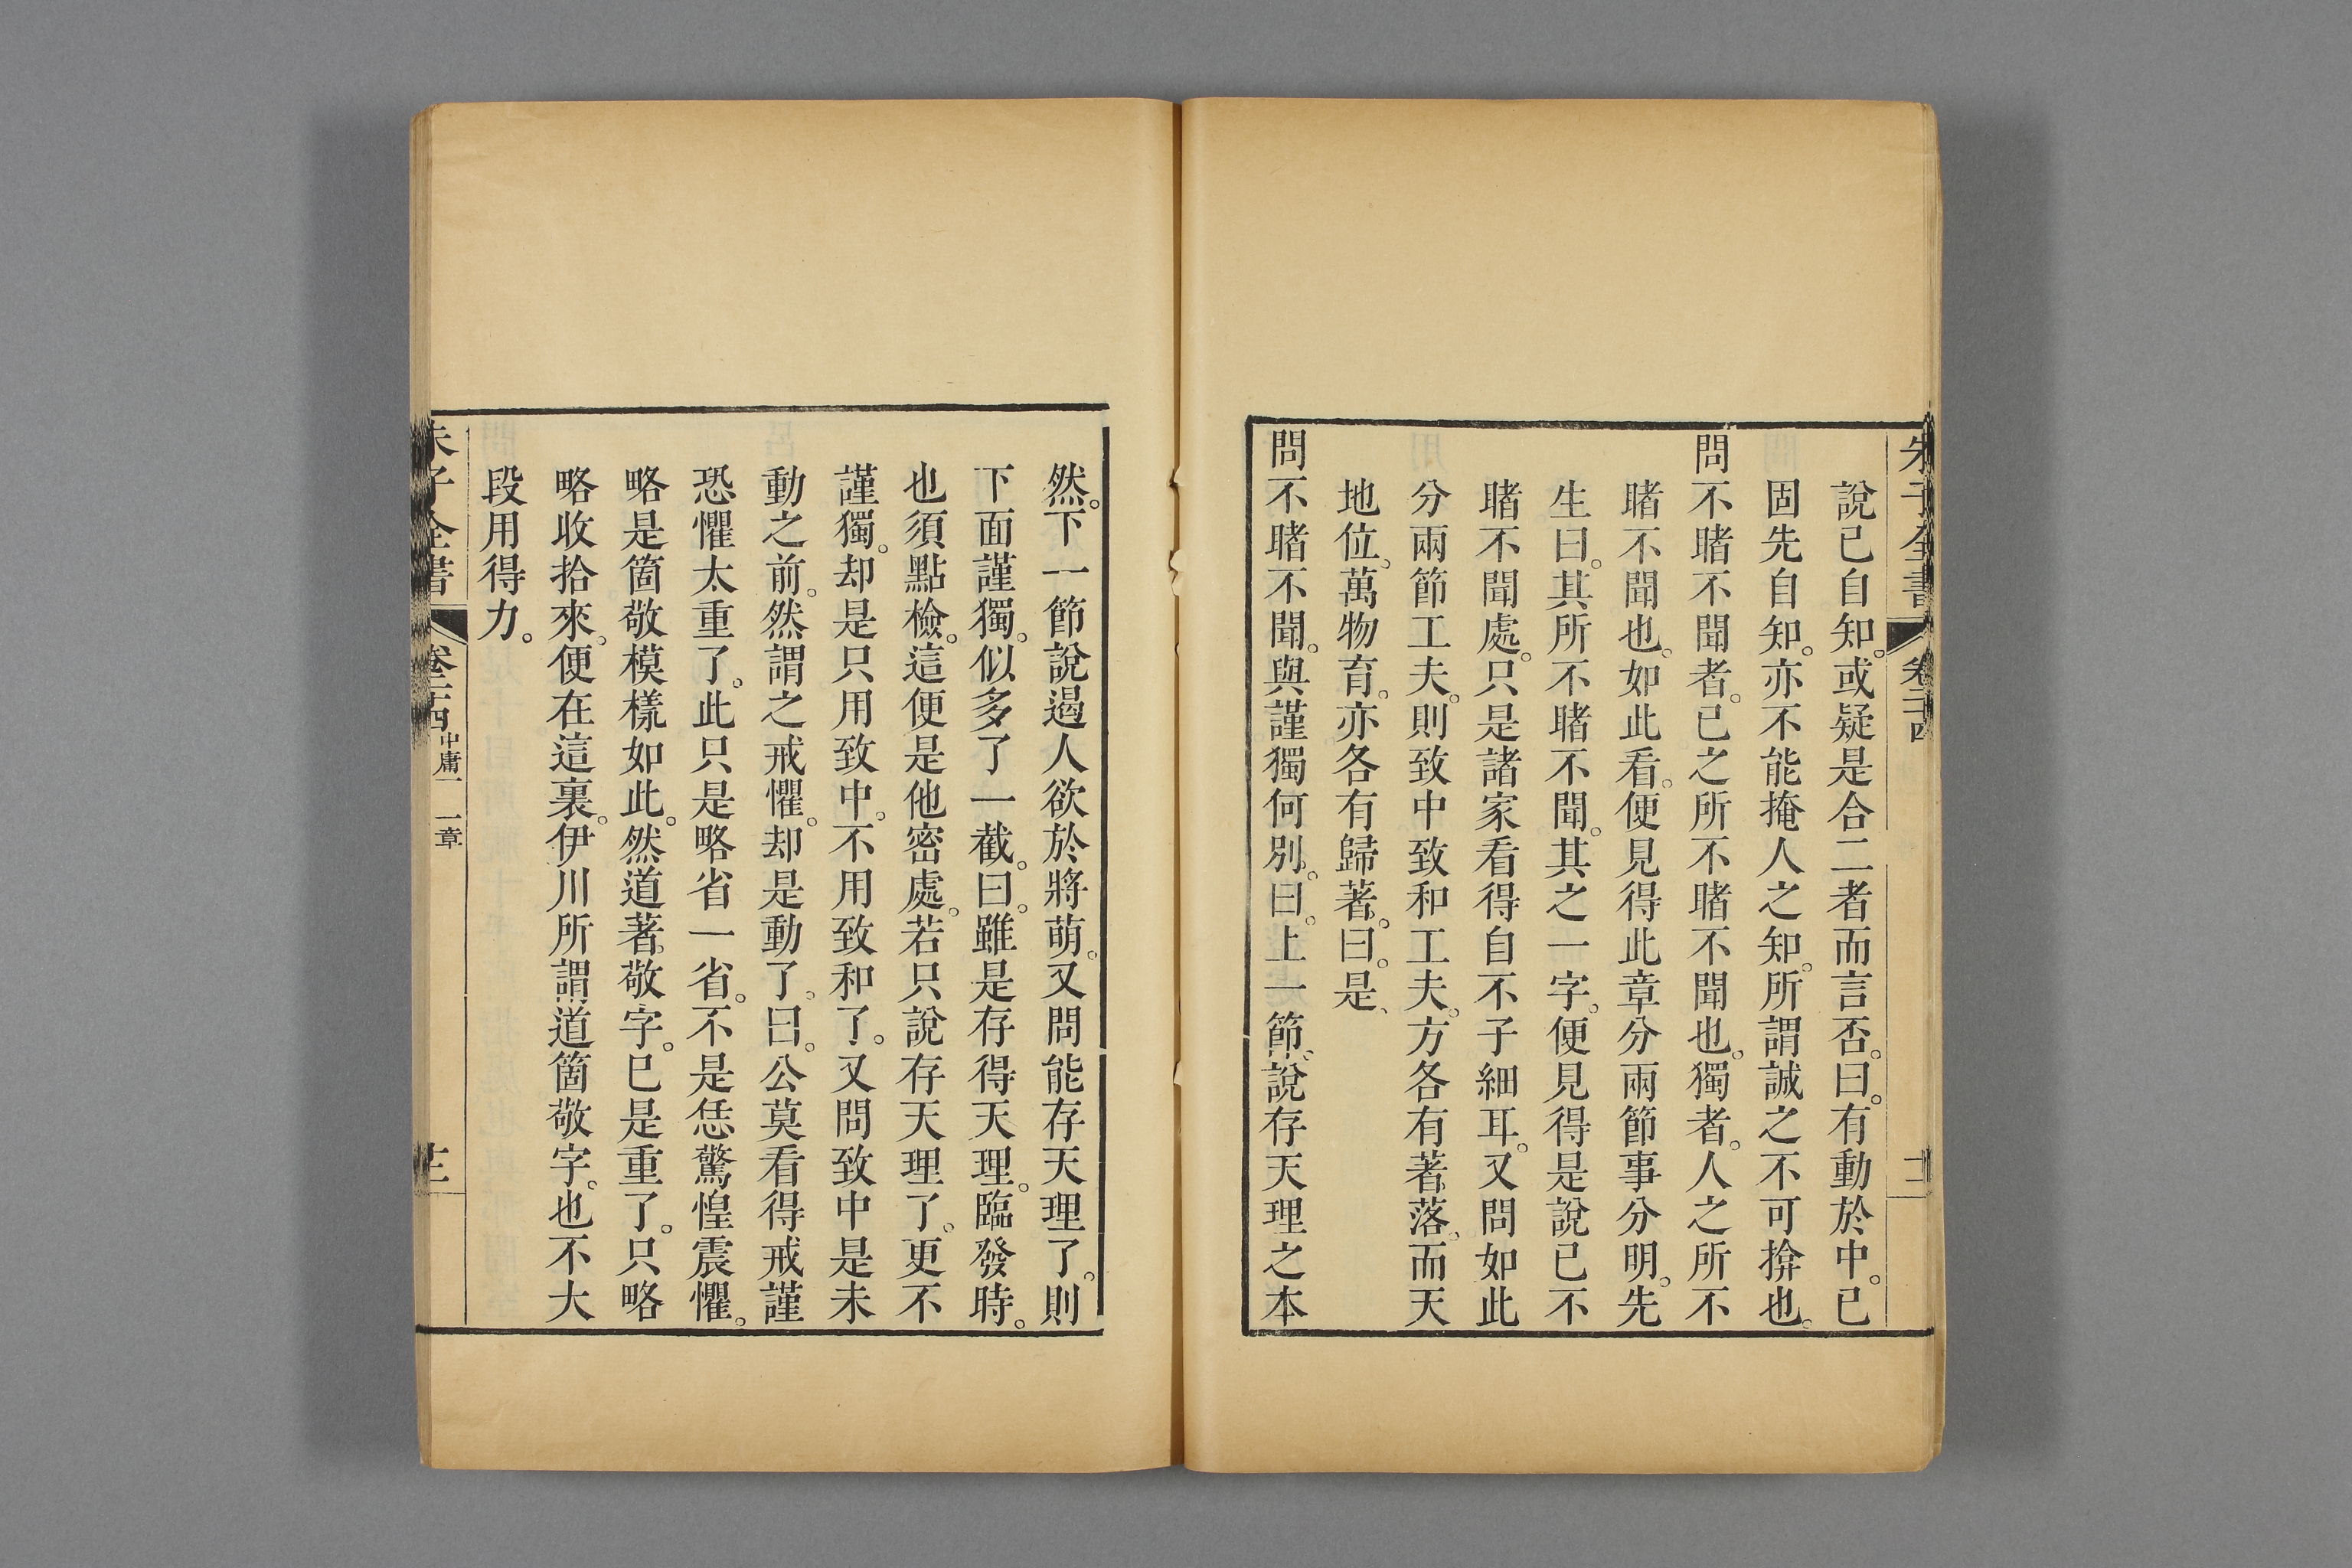 朱子全書 卷二十四
說已自知。或疑是合二者而言否。曰。有動於中。已
固先自知。亦不能掩人之知。所謂誠之不可揜也。
問不睹不聞者。已之所不睹不聞也。獨者。人之所不
睹不聞也。如此看。便見得此章分兩節事分明。先
生曰。其所不睹不聞。其之一字。便見得是說已不
睹不聞處。只是諸家看得自不子細耳。又問如此
分兩節工夫。則致中致和工夫。方各有著落。而天
地位、萬物育。亦各有歸著。曰。是、
問不睹不聞。與謹獨何別。曰。上一節、說存天理之本
然。下一節說遏人欲於將萌。又問能存天理了。則
下面謹獨。似多了一截。曰。雖是存得天理。臨發時。
也須點檢。這便是他密處。若只說存天理了。更不
謹獨。却是只用致中。不用致和了。又問致中是未
動之前。然謂之戒懼。却是動了。曰。公莫看得戒謹
恐懼太重了。此只是略省一省。不是恁驚惶震懼。
略是箇敬模樣如此。然道著敬字。已是重了。只略
略收拾來。便在這裏。伊川所謂道箇敬字。也不大
段用得力。
朱子全書 卷二十四 中庸一 一章